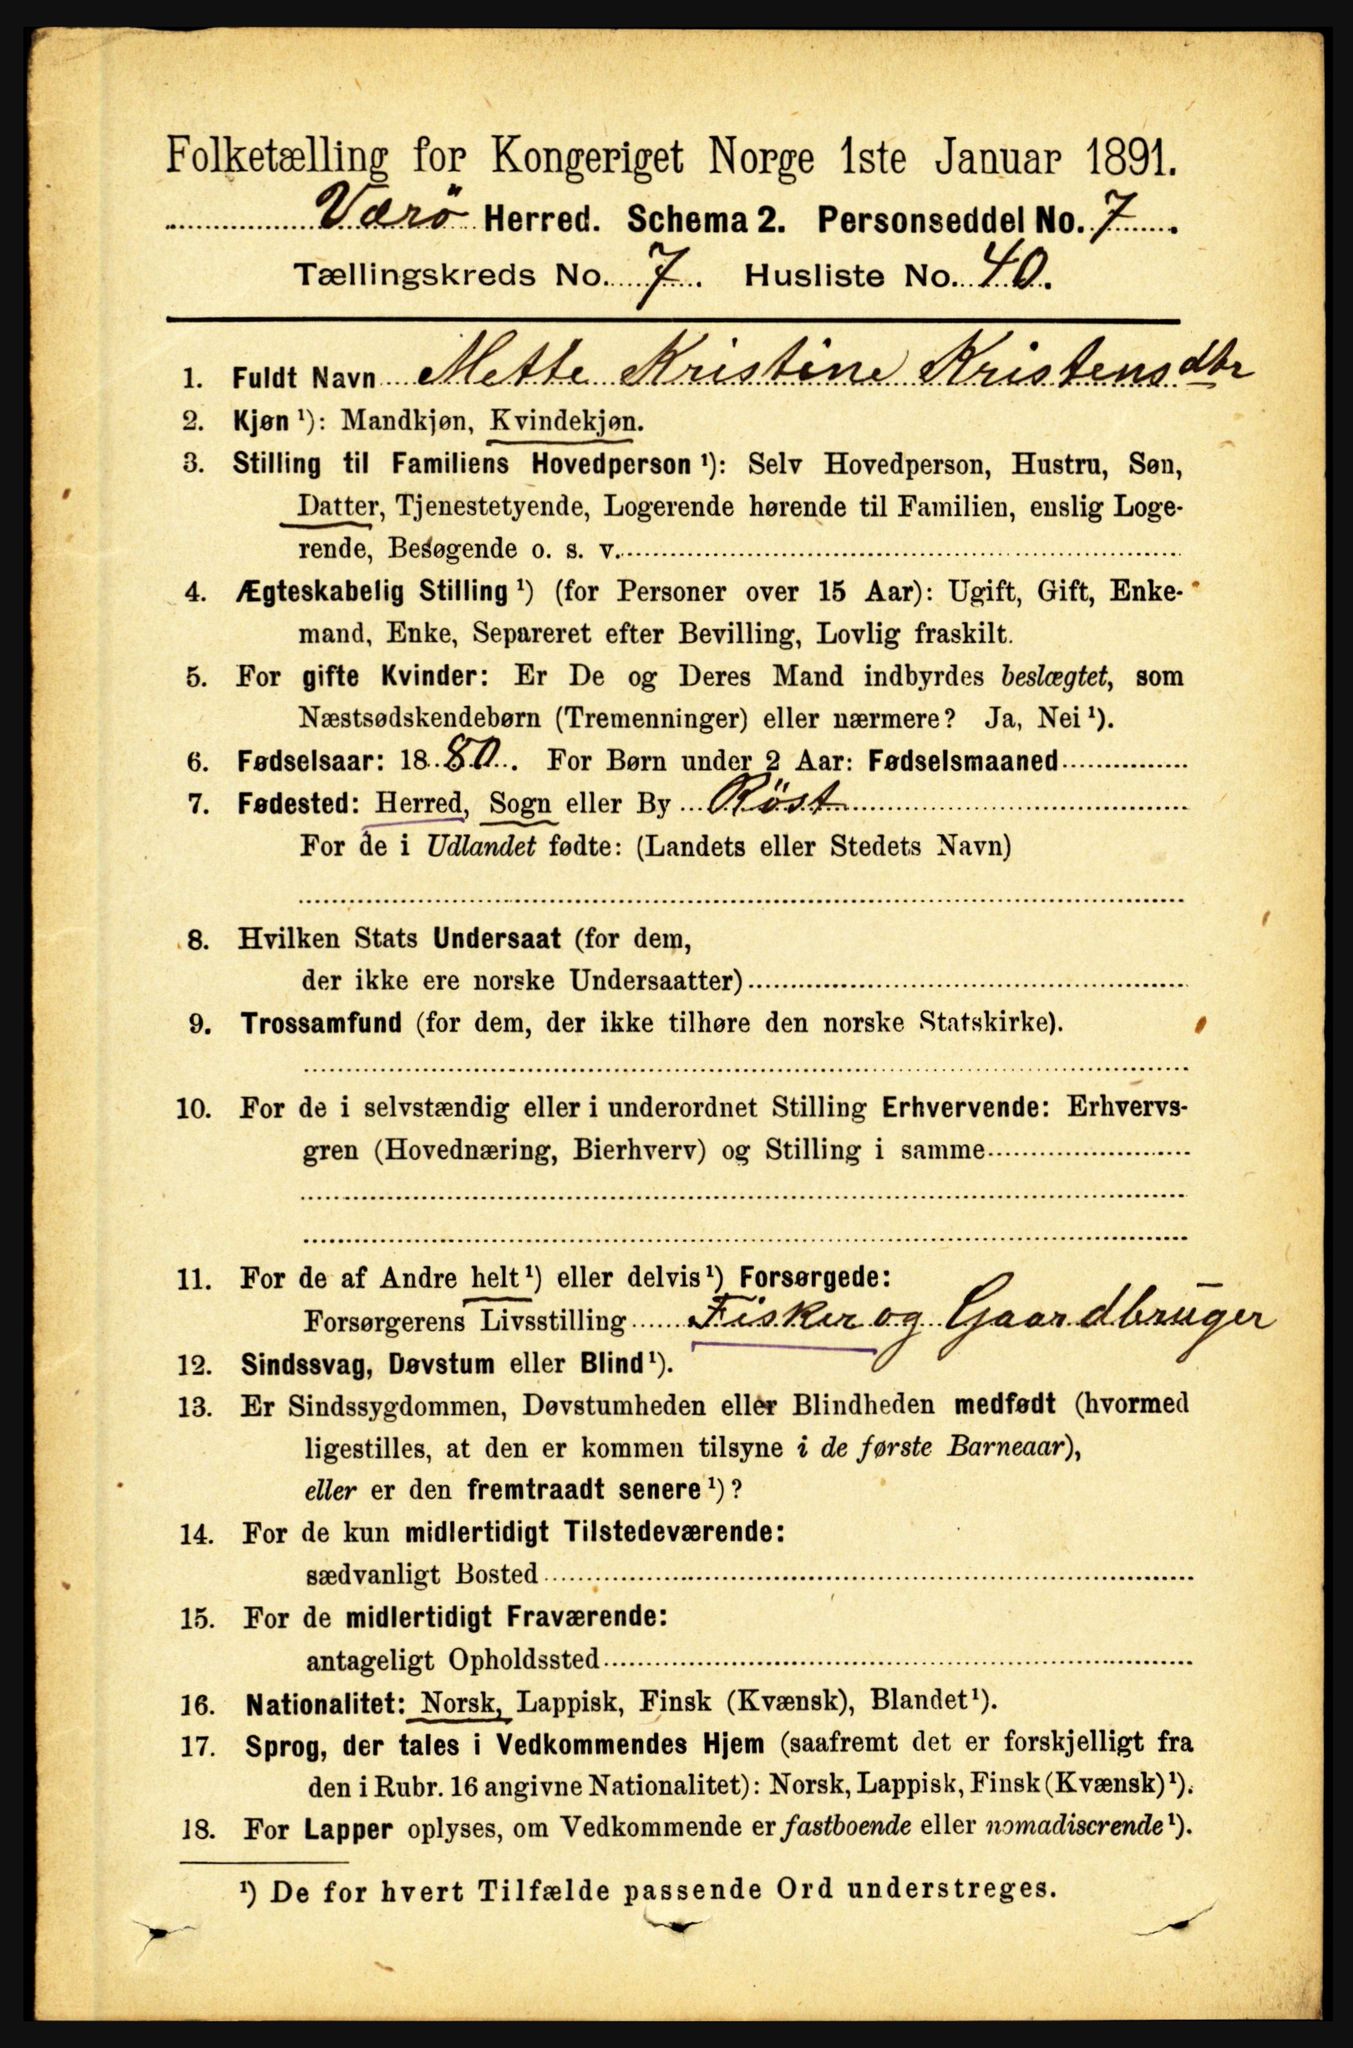 Folketælling for Kongeriget Norge 1ste Januar 1891.
Værö Herred. Schema 2. Personseddel No. 7.
Tællingskreds No. 7. Husliste No. 40.
1. Fuldt Navn Mette Kristine Kristensdtr
2. Kjøn ¹): Mandkjøn, Kvindekjøn.
3. Stilling til Familiens Hovedperson ¹): Selv Hovedperson, Hustru, Søn,
Datter, Tjenestetyende, Logerende hørende til Familien, enslig Loge-
rende, Besøgende o. s. v.
4. Ægteskabelig Stilling ¹) (for Personer over 15 Aar): Ugift, Gift, Enke-
mand, Enke, Separeret efter Bevilling, Lovlig fraskilt.
5. For gifte Kvinder: Er De og Deres Mand indbyrdes beslægtet, som
Næstsødskendebørn (Tremenninger) eller nærmere? Ja, Nei ¹).
6. Fødselsaar: 1880. For Børn under 2 Aar: Fødselsmaaned
7. Fødested: Herred, Sogn eller By Röst
For de i Udlandet fødte: (Landets eller Stedets Navn)
8. Hvilken Stats Undersaat (for dem,
der ikke ere norske Undersaatter)
9. Trossamfund (for dem, der ikke tilhøre den norske Statskirke).
10. For de i selvstændig eller i underordnet Stilling Erhvervende: Erhvervs-
gren (Hovednæring, Bierhverv) og Stilling i samme
11. For de af Andre helt ¹) eller delvis ¹) Forsørgede:
Forsørgerens Livsstilling Fisker og Gaardbruger
12. Sindssvag, Døvstum eller Blind ¹).
13. Er Sindssygdommen, Døvstumheden eller Blindheden medfødt (hvormed
ligestilles, at den er kommen tilsyne i de første Barneaar),
eller er den fremtraadt senere ¹)?
14. For de kun midlertidigt Tilstedeværende:
sædvanligt Bosted
15. For de midlertidigt Fraværende:
antageligt Opholdssted
16. Nationalitet: Norsk, Lappisk, Finsk (Kvænsk), Blandet ¹).
17. Sprog, der tales i Vedkommendes Hjem (saafremt det er forskjelligt fra
den i Rubr. 16 angivne Nationalitet): Norsk, Lappisk, Finsk (Kvænsk) ¹).
18. For Lapper oplyses, om Vedkommende er fastboende eller nomadiserende ¹).
¹) De for hvert Tilfælde passende Ord understreges.